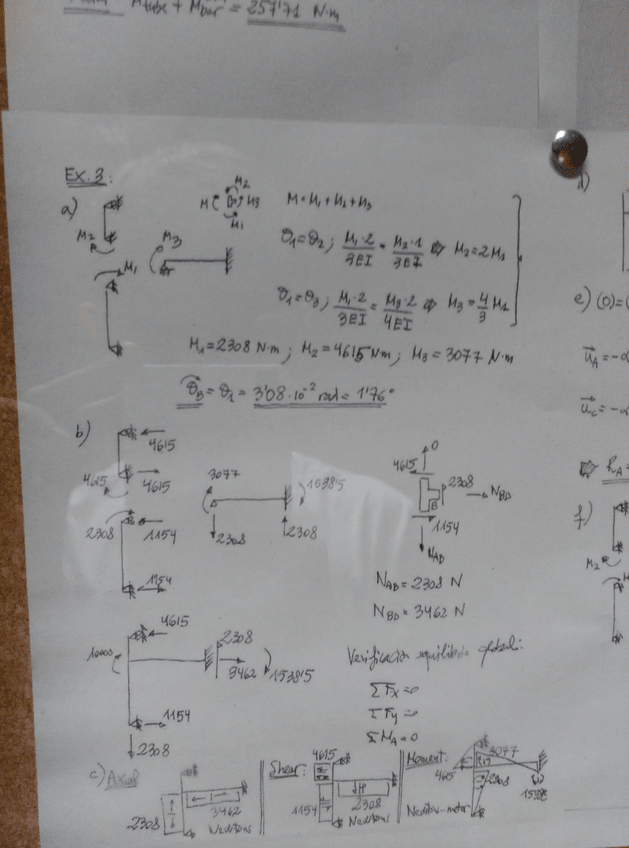 Mtube + Mbar = 257'71 N·m
Ex. 3:
a)
M2
M1
M3
M M2 M3 M1
M = M1 + M2 + M3
θ1 = θ2 ; M1·2/3EI = M2·1/3EI ⇒ M2 = 2M1
θ1 = θ3 ; M1·2/3EI = M3·2/4EI ⇒ M3 = 4/3 M1
M1 = 2308 N·m ; M2 = 4615 Nm ; M3 = 3077 N·m
θB = θ1 = 3'08·10⁻² rad = 1'76°
b)
4615
4615 4615
2308 1154
1154
3077 1538'5
2308 2308
0
4615 2308
NBD
B
1154
NAB
NAB = 2308 N
NBD = 3462 N
4615
10000
2308
3462 1538'5
1154
2308
Verificación equilibrio global:
ΣFx = 0
ΣFy = 0
ΣMA = 0
c) Axial
2308
3462
Newtons
Shear:
4615
1154
2308
Newtons
Moment:
3077
4615
2308
Newton-meter
d)
e) (0) = (
uA = -
uC = -
⇒ RA =
f)
M2
M